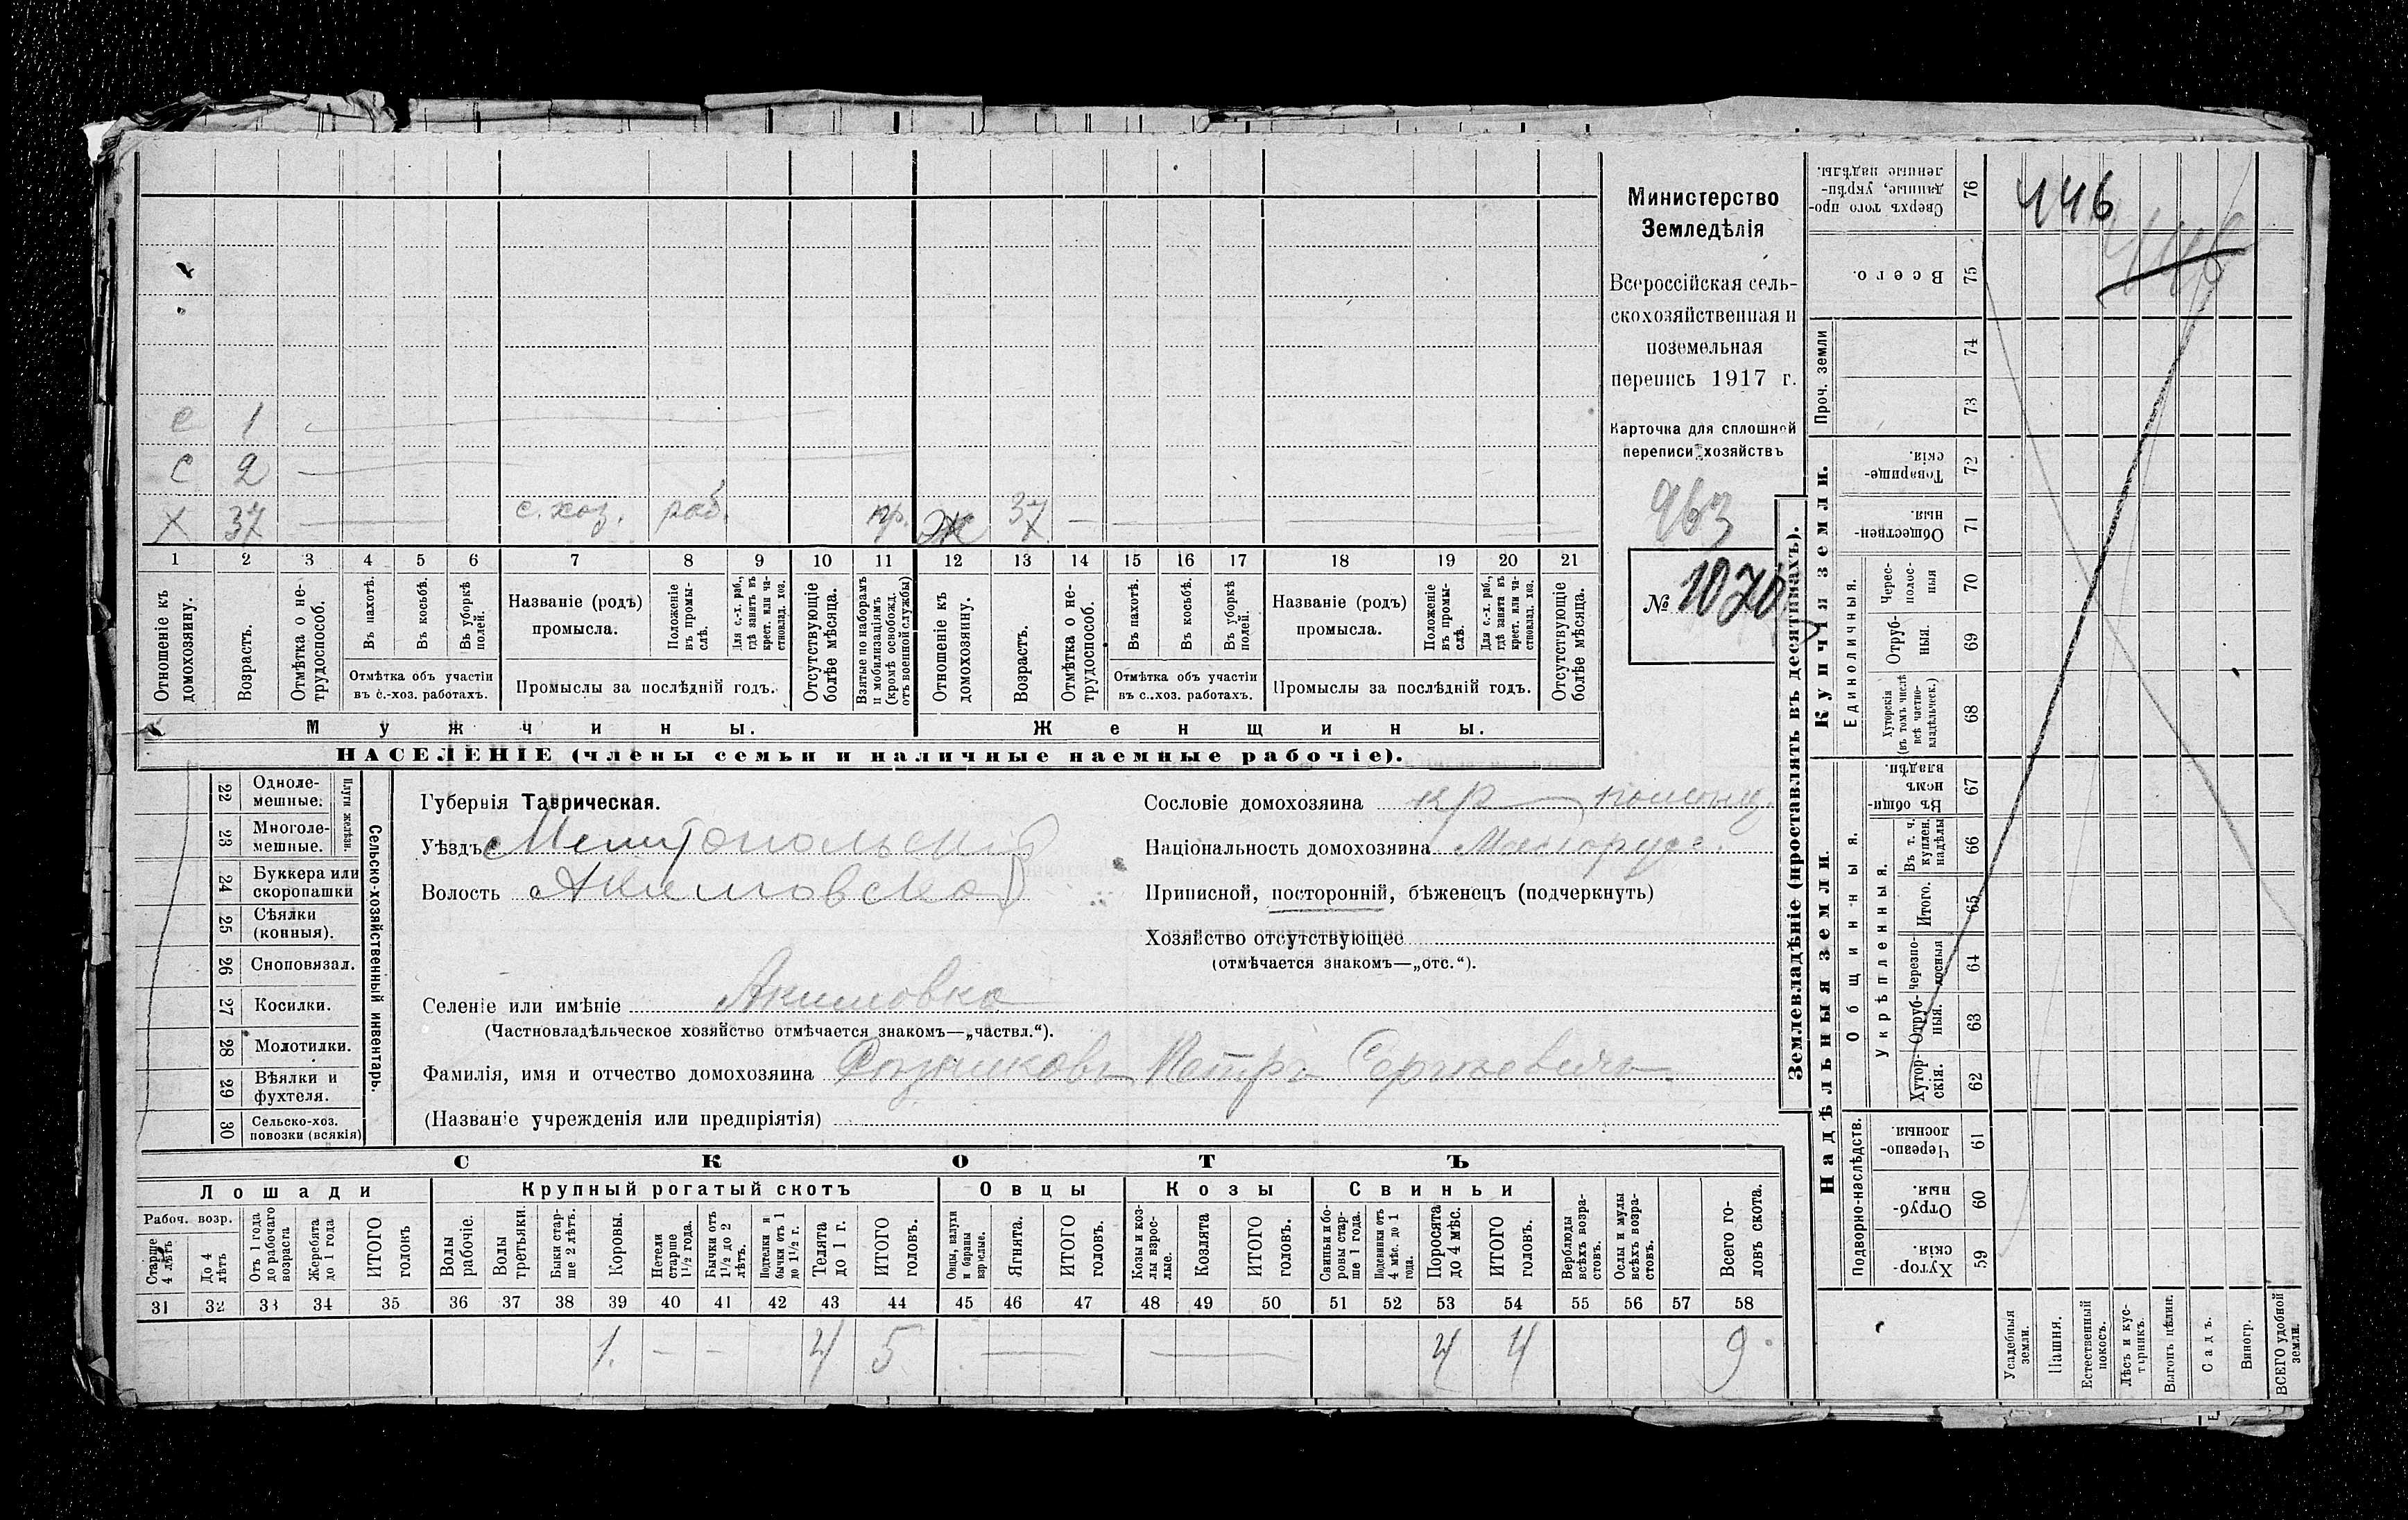 е 1
с 2
х 37 с. хоз. раб. пр. Ж 37
1 2 3 4 5 6 7 8 9 10 11 12 13 14 15 16 17 18 19 20 21
Отношеніе къ домохозяину.
Возрастъ.
Отмѣтка о не-трудоспособ.
Въ пахотѣ.
Въ косьбѣ.
Въ уборкѣ полей.
Отмѣтка объ участіи
въ с.-хоз. работахъ.
Названіе (родъ)
промысла.
Положеніе въ промы-слѣ.
Для с.-х. раб., гдѣ занятъ въ крест. или ча-стновлад. хоз.
Промыслы за послѣдній годъ.
Отсутствующіе болѣе мѣсяца.
Взятые по наборамъ и мобилизаціямъ (кромѣ освобожд. отъ военной службы)
Отношеніе къ домохозяину.
Возрастъ.
Отмѣтка о не-трудоспособ.
Въ пахотѣ.
Въ косьбѣ.
Въ уборкѣ полей.
Отмѣтка объ участіи
въ с.-хоз. работахъ.
Названіе (родъ)
промысла.
Положеніе въ промы-слѣ.
Для с.-х. раб., гдѣ занята въ крест. или ча-стновлад. хоз.
Промыслы за послѣдній годъ.
Отсутствующіе болѣе мѣсяца.
Мужчины. Женщины.
НАСЕЛЕНІЕ (члены семьи и наличные наемные рабочіе).
Министерство
Земледѣлія
Всероссійская сель-
скохозяйственная и
поземельная
перепись 1917 г.
Карточка для сплошной
переписи хозяйствъ
963
№ 1070
22 Одноле-мешные.
23 Многоле-мешные.
Плуги желѣзн.
24 Буккера или скоропашки
25 Сѣялки (конныя).
26 Сноповязал.
27 Косилки.
28 Молотилки.
29 Вѣялки и фухтеля.
30 Сельско-хоз. повозки (всякія)
Сельско-хозяйственный инвентарь.
Губернія Таврическая.
Уѣздъ Мелитопольскій
Волость Акимовская
Селеніе или имѣніе Акимовка
(Частновладѣльческое хозяйство отмѣчается знакомъ—„частвл.“).
Фамилія, имя и отчество домохозяина Петръ Сергѣевичъ
(Названіе учрежденія или предпріятія)
Сословіе домохозяина кр
Національность домохозяина Малорусс.
Приписной, посторонній, бѣженецъ (подчеркнуть)
Хозяйство отсутствующее
(отмѣчается знакомъ—„отс.“).
СКОТЪ
Лошади Крупный рогатый скотъ Овцы Козы Свиньи
Рабоч. возр.
Старше 4 лѣтъ
До 4 лѣтъ
Отъ 1 года до рабочаго возраста
Жеребята до 1 года
ИТОГО головъ
Волы рабочіе.
Волы третьяки.
Быки стар-ше 2 лѣтъ.
Коровы.
Нетели старше 1 1/2 года.
Бычки отъ 1 1/2 до 2 лѣтъ.
Подтелки и бычки отъ 1 до 1 1/2 г.
Телята до 1 г.
ИТОГО головъ.
Овцы, валухи и бараны взрослые.
Ягнята.
ИТОГО головъ.
Козы и коз-лы взрос-лые.
Козлята
ИТОГО головъ.
Свиньи и бо-ровы стар-ше 1 года.
Подсвинки отъ 4 мѣс. до 1 года.
Поросята до 4 мѣс.
ИТОГО головъ.
Верблюды всѣхъ возра-стовъ.
Ослы и мулы всѣхъ возра-стовъ.
Всего го-ловъ скота.
31 32 33 34 35 36 37 38 39 40 41 42 43 44 45 46 47 48 49 50 51 52 53 54 55 56 57 58
1. — — 4 5 — — 4 4 9
Землевладѣніе (проставлять въ десятинахъ).
Сверхъ того про-данные, укрѣп-ленные надѣлы. 76
446
446
Всего. 75
Проч. земли
74
73
Купчія земли.
Товарище-скія. 72
Обществен-ныя. 71
Единоличныя.
Черес-полос-ныя 70
Отруб-ныя. 69
Хуторскія (въ томъ числѣ всѣ частно-владѣльческ.) 68
Надѣльныя земли.
Общинныя.
Въ общи-номъ владѣн. 67
Укрѣпленныя.
Въ т. ч. куплен. надѣлы 66
Итого. 65
Черезпо-лосныя 64
Отруб-ныя. 63
Хутор-скія. 62
Подворно-наслѣдств.
Черезпо-лосныя. 61
Отруб-ныя. 60
Хутор-скія. 59
Усадебныя земли.
Пашня.
Естественный покосъ.
Лѣсъ и кус-тарникъ.
Выгонъ цѣлин.
Садъ.
Виногр.
ВСЕГО удобной земли.